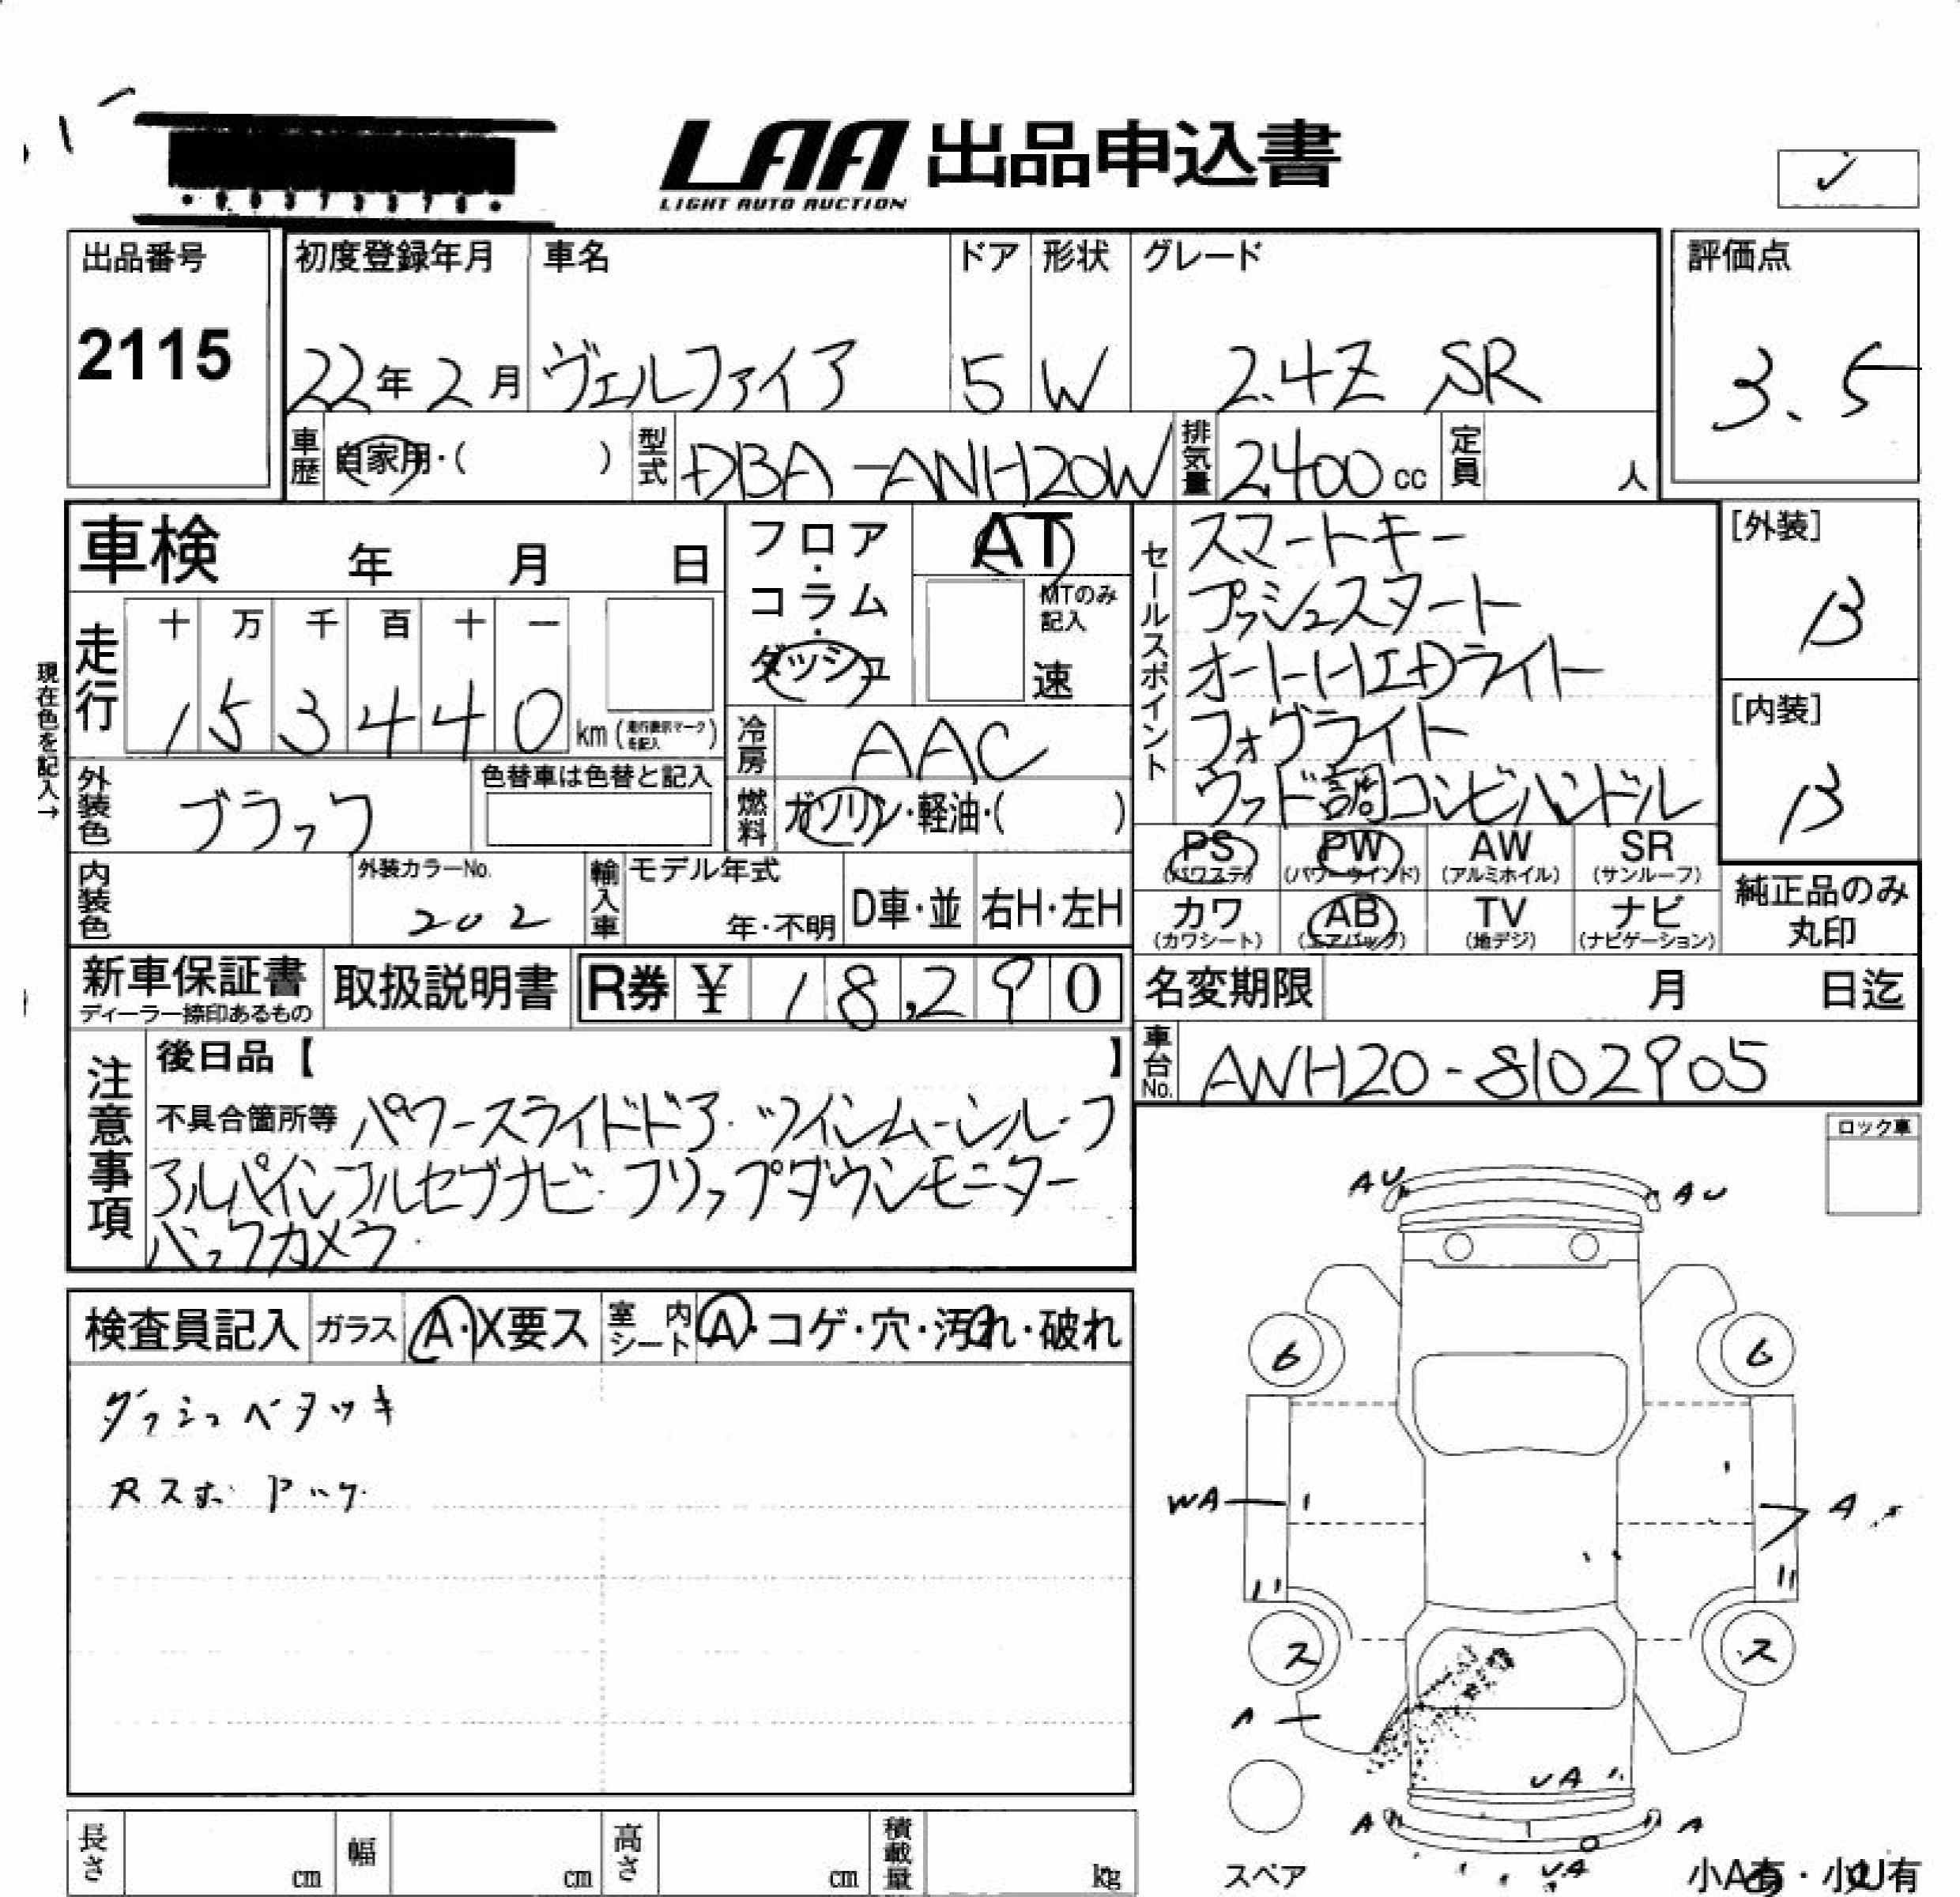 LAA 出品申込書
LIGHT AUTO AUCTION
出品番号 初度登録年月 車名 ドア 形状 グレード 評価点
2115 22年2月 ヴェルファイア 5 W 2.4Z SR 3.5
車歴 自家用・( ) 型式 DBA-ANH20W 排気量 2400cc 定員 人
車検 年 月 日
フロア・コラム・ダッシュ AT
MTのみ記入 速
セールスポイント
スマートキー
プッシュスタート
オートHIDライト
フォグライト
ウッド調コンビハンドル
[外装] B
[内装] B
現在色を記入→
走行 十 万 千 百 十 一
153440 km (走行表示マークを記入)
冷房 AAC
外装色 ブラック 色替車は色替と記入
燃料 ガソリン・軽油・( )
内装色 外装カラーNo. 202 輸入車 モデル年式 年・不明 D車・並 右H・左H
PS (パワステ) PW (パワーウインド) AW (アルミホイル) SR (サンルーフ)
カワ (カワシート) AB (エアバッグ) TV (地デジ) ナビ (ナビゲーション)
純正品のみ丸印
新車保証書 ディーラー捺印あるもの 取扱説明書 R券 ¥ 18,290
名変期限 月 日迄
車台No. ANH20-8102905
注意事項 後日品【 】
不具合箇所等 パワースライドドア・ツインムーンルーフ
アルパインフルセグナビ・フリップダウンモニター
バックカメラ・
ロック車
検査員記入 ガラス A・X要ス 室内シート A・コゲ・穴・汚れ・破れ
ダッシュベタツキ
AU AU
6 6
WA A
ス ス
A
UA
A A
UA
スペア 小A有・小U有
長さ cm 幅 cm 高さ cm 積載量 kg